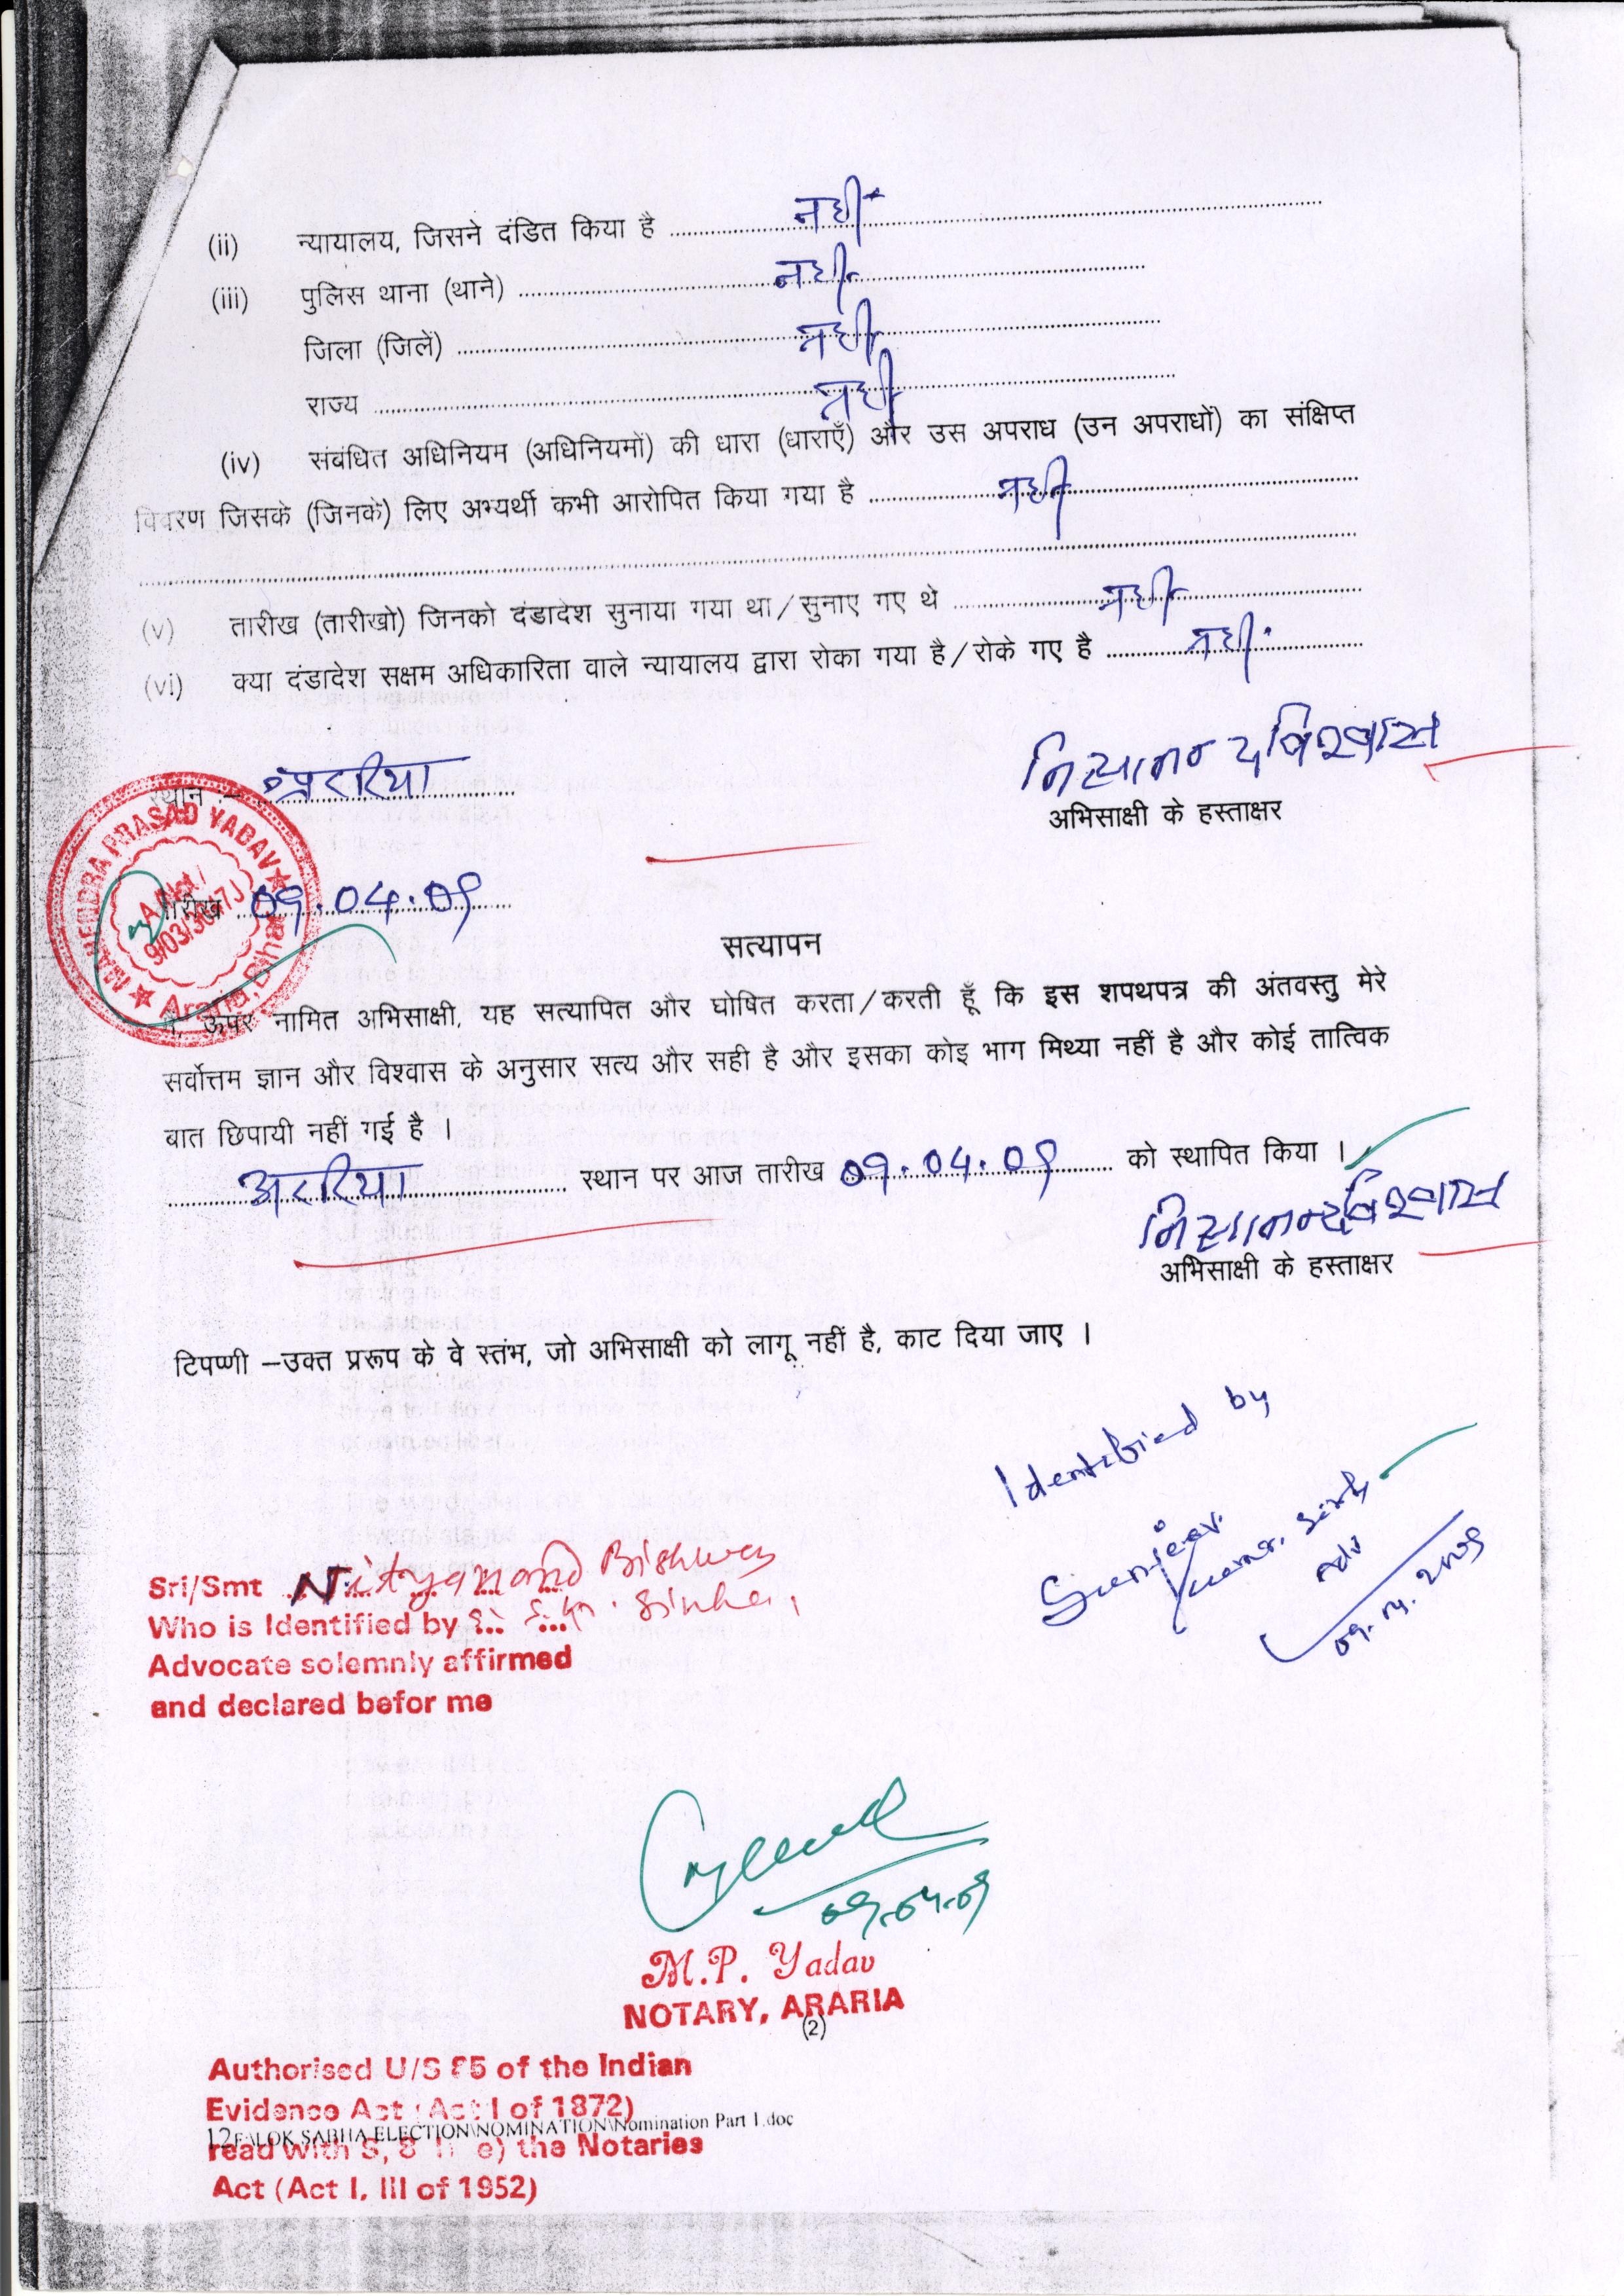 (ii) न्यायालय, जिसने दंडित किया है .......... नही
(iii) पुलिस थाना (थाने) .......... नही
जिला (जिलें) .......... नही
राज्य .......... नही
(iv) संबंधित अधिनियम (अधिनियमों) की धारा (धाराएँ) और उस अपराध (उन अपराधों) का संक्षिप्त
विवरण जिसके (जिनके) लिए अभ्यर्थी कभी आरोपित किया गया है .......... नही
(v) तारीख (तारीखो) जिनको दंडादेश सुनाया गया था/सुनाए गए थे .......... नही
(vi) क्या दंडादेश सक्षम अधिकारिता वाले न्यायालय द्वारा रोका गया है/रोके गए है .......... नही
नित्यानन्द विश्वास
स्थान :- अररिया
अभिसाक्षी के हस्ताक्षर
MAHENDRA PRASAD YADAV
Araria, Bihar
तारीख 09.04.09
सत्यापन
मैं, ऊपर नामित अभिसाक्षी, यह सत्यापित और घोषित करता/करती हूँ कि इस शपथपत्र की अंतवस्तु मेरे
सर्वोत्तम ज्ञान और विश्वास के अनुसार सत्य और सही है और इसका कोइ भाग मिथ्या नहीं है और कोई तात्विक
बात छिपायी नहीं गई है ।
अररिया स्थान पर आज तारीख 09.04.09 को स्थापित किया ।
नित्यानन्द विश्वास
अभिसाक्षी के हस्ताक्षर
टिपण्णी –उक्त प्ररूप के वे स्तंभ, जो अभिसाक्षी को लागू नहीं है, काट दिया जाए ।
Identified by
Sanjeev Kumar Sinha
Adv
09.04.2009
Sri/Smt Nityanand Bishwas
Who is Identified by S. Kr. Sinha,
Advocate solemnly affirmed
and declared befor me
09.04.09
M.P. Yadav
NOTARY, ARARIA
(2)
Authorised U/S 85 of the Indian
Evidence Act (Act I of 1872)
12F:\LOK SABHA ELECTION\NOMINATION\Nomination Part 1.doc
read with S, 8 e) the Notaries
Act (Act I, III of 1952)